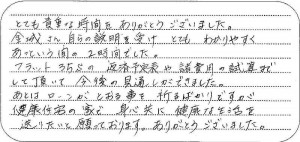 とても貴重な時間をありがとうございました。
金城さん自らの説明を受け とても わかりやすく
あっという間の 2時間でした。
フラット35Sの 返済予定表や諸費用の試算まで
して頂いて 今後の見通しができました。
あとは ローンが とおる事を 祈るばかりですが
健康住宅の家で 身心共に 健康な生活を
送りたいと願っております。ありがとうございました。